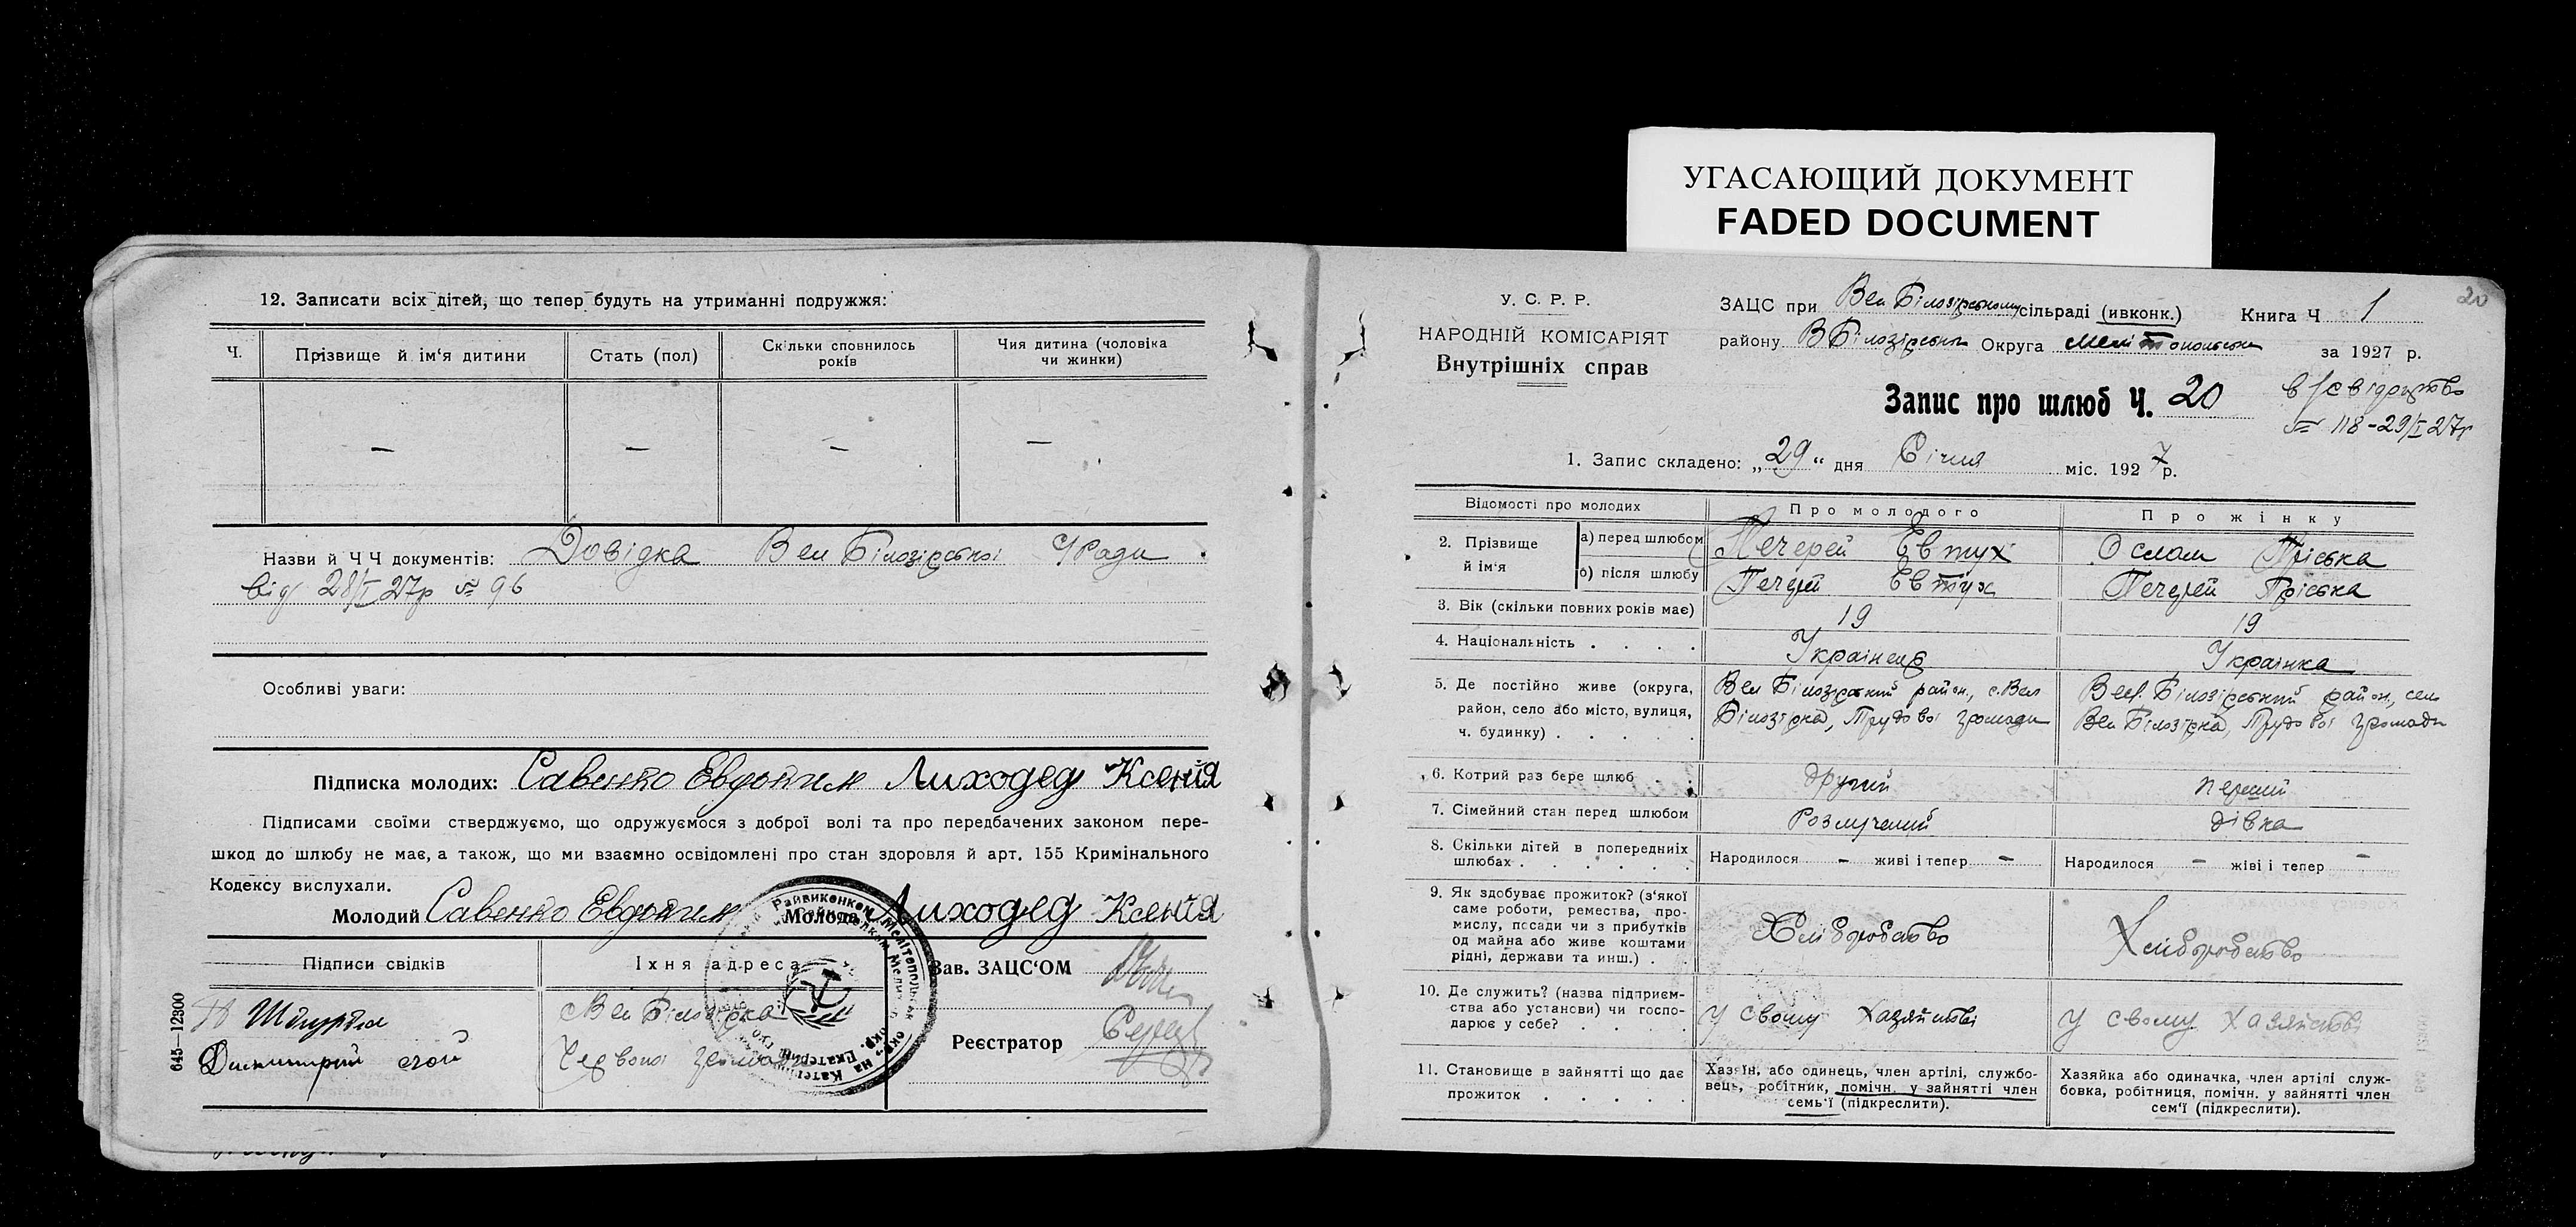 УГАСАЮЩИЙ ДОКУМЕНТ
FADED DOCUMENT
12. Записати всіх дітей, що тепер будуть на утриманні подружжя:
Ч. Прізвище й ім'я дитини Стать (пол) Скільки сповнилось років Чия дитина (чоловіка чи жинки)
— — — —
Назви й Ч Ч документів: Довідка Вел Білозірської С/Ради
від 28/I 27р № 96
Особливі уваги:
Підписка молодих: Савенко Евдоким Лиходед Ксенія
Підписами своїми стверджуємо, що одружуємося з доброї волі та про передбачених законом пере-
шкод до шлюбу не має, а також, що ми взаємно освідомлені про стан здоровля й арт. 155 Кримінального
Кодексу вислухали.
Молодий Савенко Евдоким Молода Лиходед Ксенія
Підписи свідків Їхня адреса Зав. ЗАЦС'ОМ
Вел Білозірка
Дмитрий Червоної громади Реєстратор
645—12300
20
У. С. Р. Р.
НАРОДНІЙ КОМІСАРІЯТ
Внутрішніх справ
ЗАЦС при Вел Білозірському сільраді (ивконк.) Книга Ч 1
району ВБілозірськ Округа Мелітопольська за 1927 р.
Запис про шлюб Ч. 20
в/свідоцтво
№ 118-29/I 27р
1. Запис складено: „29“ дня Січня міс. 1927р.
Відомості про молодих Про молодого Про жінку
2. Прізвище й ім'я
а) перед шлюбом Печерей Євтух Ослам Пріська
б) після шлюбу Печерей Євтух Печерей Пріська
3. Вік (скільки повних років має) 19 19
4. Національність . . . . Українець Українка
5. Де постійно живе (округа, район, село або місто, вулиця, ч. будинку) . . . . .
Вел Білозірський район, с. Вел Білозірка, Трудової громади
Вел. Білозірський район, село Вел Білозірка, Трудової громади
6. Котрий раз бере шлюб другий перший
7. Сімейний стан перед шлюбом Розлучений дівка
8. Скільки дітей в попередниіх шлюбах . . . . . Народилося — живі і тепер — Народилося — жіві і тепер —
9. Як здобуває прожиток? (з'якої саме роботи, ремества, про-мислу, посади чи з прибутків од майна або живе коштами рідні, держави та инш.) .
Хліборобство Хліборобство
10. Де служить? (назва підприєм-ства або установи) чи госпо-дарює у себе? . . . .
У свому хазяйстві У свому хазяйстві
11. Становище в зайнятті що дає прожиток . . . . .
Хазяїн, або одинець, член артілі, службо-вець, робітник, помічн. у зайнятті член семь'ї (підкреслити).
Хазяйка або одиначка, член артілі служ-бовка, робітниця, помічн. у зайнятті член сем'ї (підкреслити).